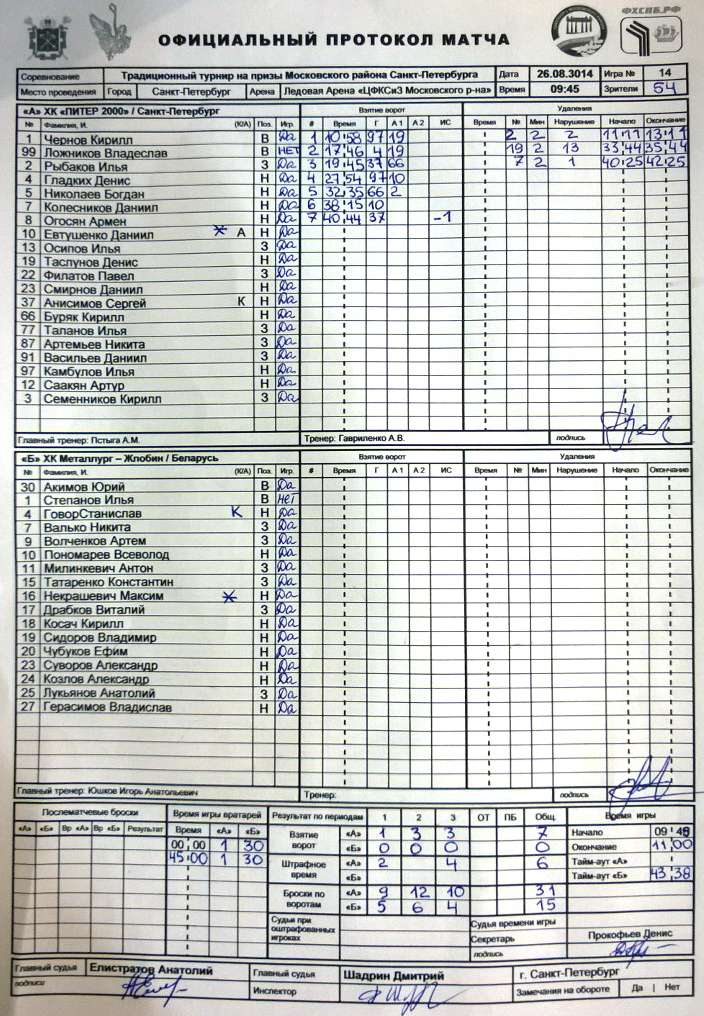 ФХСПБ.РФ
ОФИЦИАЛЬНЫЙ ПРОТОКОЛ МАТЧА
Соревнование Традиционный турнир на призы Московского района Санкт-Петербурга Дата 26.08.3014 Игра № 14
Место проведения Город Санкт-Петербург Арена Ледовая Арена «ЦФКСиЗ Московского р-на» Время 09:45 Зрители 54
«А» ХК «ПИТЕР 2000» / Санкт-Петербург Взятие ворот Удаления
№ Фамилия, И. (К/А) Поз. Игр. # Время Г А 1 А 2 ИС Время № Мин Нарушение Начало Окончание
1 Чернов Кирилл В Да 1 10 58 97 19 2 2 2 11 11 13 11
99 Ложников Владеслав В НЕТ 2 17 46 4 19 19 2 13 33 44 35 44
2 Рыбаков Илья З Да 3 19 45 37 66 7 2 1 40 25 42 25
4 Гладких Денис Н Да 4 27 54 97 10
5 Николаев Богдан Н Да 5 32 35 66 2
7 Колесников Даниил Н Да 6 38 15 10
8 Огосян Армен Н Да 7 40 44 37 -1
10 Евтушенко Даниил А Н Да
13 Осипов Илья З Да
19 Таслунов Денис Н Да
22 Филатов Павел З Да
23 Смирнов Даниил Н Да
37 Анисимов Сергей К Н Да
66 Буряк Кирилл Н Да
77 Таланов Илья З Да
87 Артемьев Никита З Да
91 Васильев Даниил З Да
97 Камбулов Илья Н Да
12 Саакян Артур Н Да
3 Семенников Кирилл З Да
Главный тренер: Пстыга А.М. Тренер: Гавриленко А.В. подпись
«Б» ХК Металлург – Жлобин / Беларусь Взятие ворот Удаления
№ Фамилия, И. (К/А) Поз. Игр. # Время Г А 1 А 2 ИС Время № Мин Нарушение Начало Окончание
30 Акимов Юрий В Да
1 Степанов Илья В НЕТ
4 ГоворСтанислав К Н Да
7 Валько Никита З Да
9 Волченков Артем З Да
10 Пономарев Всеволод Н Да
11 Милинкевич Антон З Да
15 Татаренко Константин З Да
16 Некрашевич Максим Н Да
17 Драбков Виталий З Да
18 Косач Кирилл Н Да
19 Сидоров Владимир Н Да
20 Чубуков Ефим Н Да
23 Суворов Александр Н Да
24 Козлов Александр Н Да
25 Лукьянов Анатолий З Да
27 Герасимов Владислав Н Да
Главный тренер: Юшков Игорь Анатольевич Тренер: подпись
Послематчевые броски Время игры вратарей Результат по периодам 1 2 3 ОТ ПБ Общ. Время игры
«А» «Б» Вр «А» Вр «Б» Результат Время «А» «Б»
00 00 1 30
45 00 1 30
Взятие ворот «А» 1 3 3 7 Начало 09 48
«Б» 0 0 0 0 Окончание 11 00
Штрафное время «А» 2 4 6 Тайм-аут «А»
«Б» Тайм-аут «Б» 43 38
Броски по воротам «А» 9 12 10 31
«Б» 5 6 4 15
Судьи при оштрафованных игроках Судья времени игры
Секретарь Прокофьев Денис
подпись
Главный судья Елистратов Анатолий Главный судья Шадрин Дмитрий г. Санкт-Петербург
подписи Инспектор Замечания на обороте Да | Нет